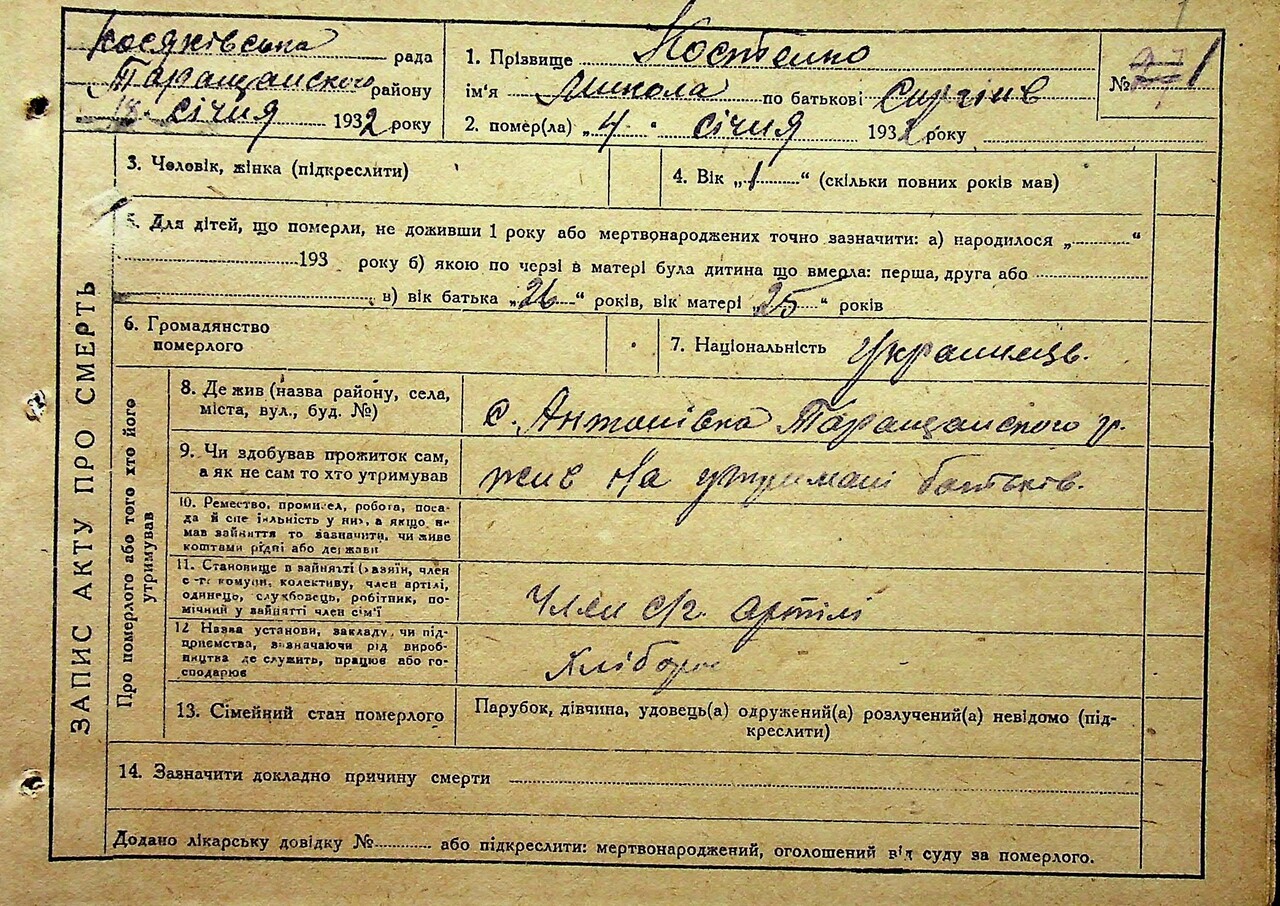 Косяківська рада
Таращанского району
18. січня 1932 року
1. Прізвище Костенко
ім'я Микола по батькові Сергіїв
2. помер(ла) „4" січня 1932 року
№ 1
ЗАПИС АКТУ ПРО СМЕРТЬ
3. Чоловік, жінка (підкреслити)
4. Вік „1" (скільки повних років мав)
5. Для дітей, що померли, не доживши 1 року або мертвонароджених точно зазначити: а) народилося „ "
193 року б) якою по черзі в матері була дитина що вмерла: перша, друга або
в) вік батька „26" років, вік матері „25" років
6. Громадянство
померлого
7. Національність Украинець.
Про померлого або того хто його
утримував
8. Де жив (назва району, села,
міста, вул., буд. №)
с. Антонівка Таращанского р.
9. Чи здобував прожиток сам,
а як не сам то хто утримував
жив на утримані батьків.
10. Ремество, промисел, робота, поса-
да й спеціяльність у них, а якщо не
мав зайняття то зазначити, чи живе
коштами рідні або держави
11. Становище в зайнятті (хазяїн, член
с-г. комуни, колективу, член артілі,
одинець, службовець, робітник, по-
мічний у зайнятті член сім'ї
Член с/г. артілі
12 Назва установи, закладу, чи під-
приємства, зазначаючи рід вироб-
ництва де служить, працює або го-
сподарює
Хлібороб
13. Сімейний стан померлого
Парубок, дівчина, удовець(а) одружений(а) розлучений(а) невідомо (під-
креслити)
14. Зазначити докладно причину смерти
Додано лікарську довідку № або підкреслити: мертвонароджений, оголошений від суду за померлого.